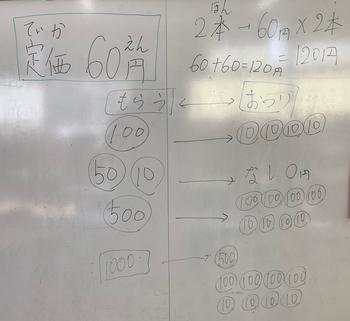 ていか えん
定価 60円
ほん
2本→60円×2本
60+60=120円=120円
もらう ↔ おつり
100 → 10 10 10 10
50 10 → なし 0円
500 → 100 100 100 100
10 10 10 10
1000 → 500
100 100 100 100
10 10 10 10